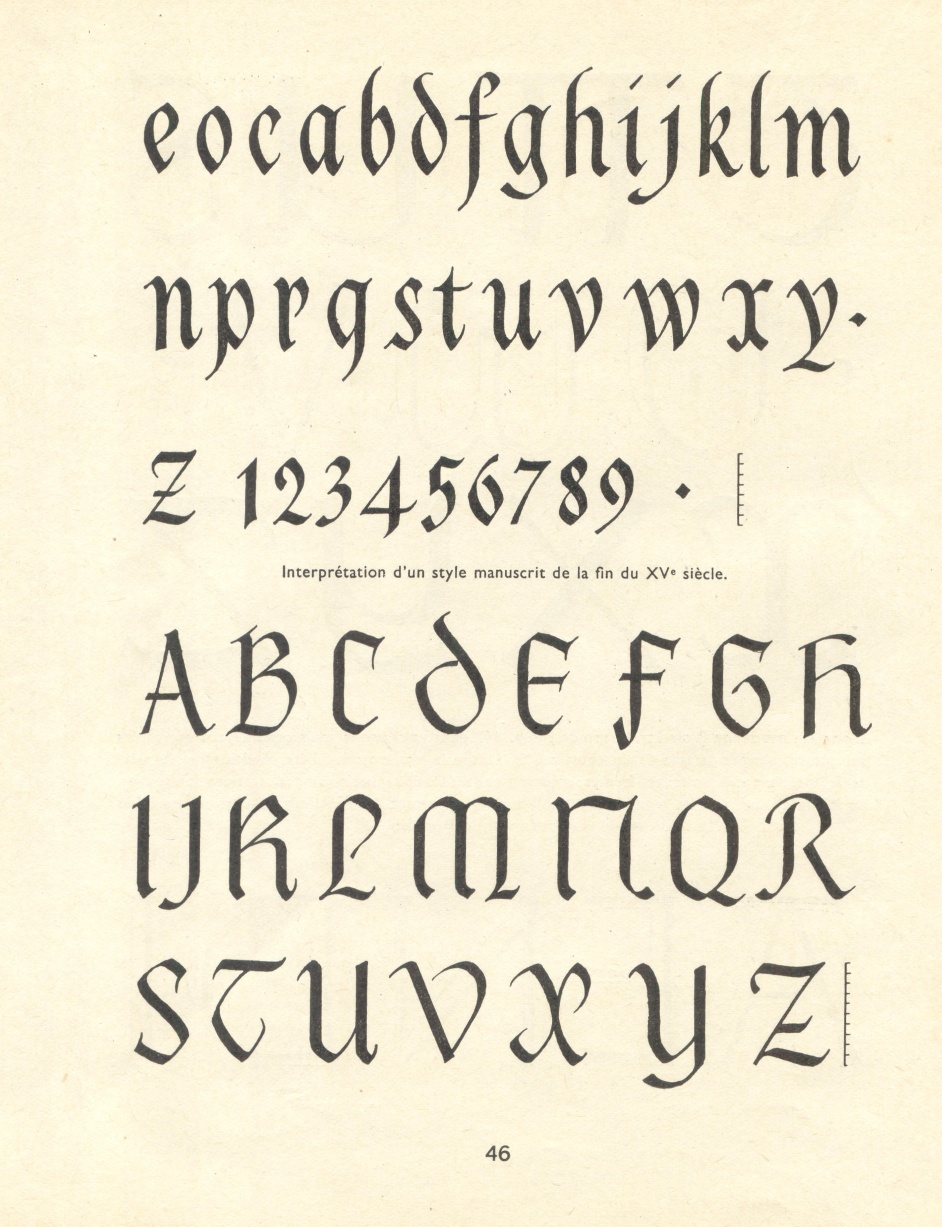 eocabdfghijklm
nprqstuvwxy·
Z 123456789 ·
Interprétation d'un style manuscrit de la fin du XVᵉ siècle.
ABCDEFGH
IJKLMNQR
STUVXYZ
46